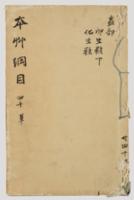 蟲部
卵生類下
化生類
本艸綱目
四十